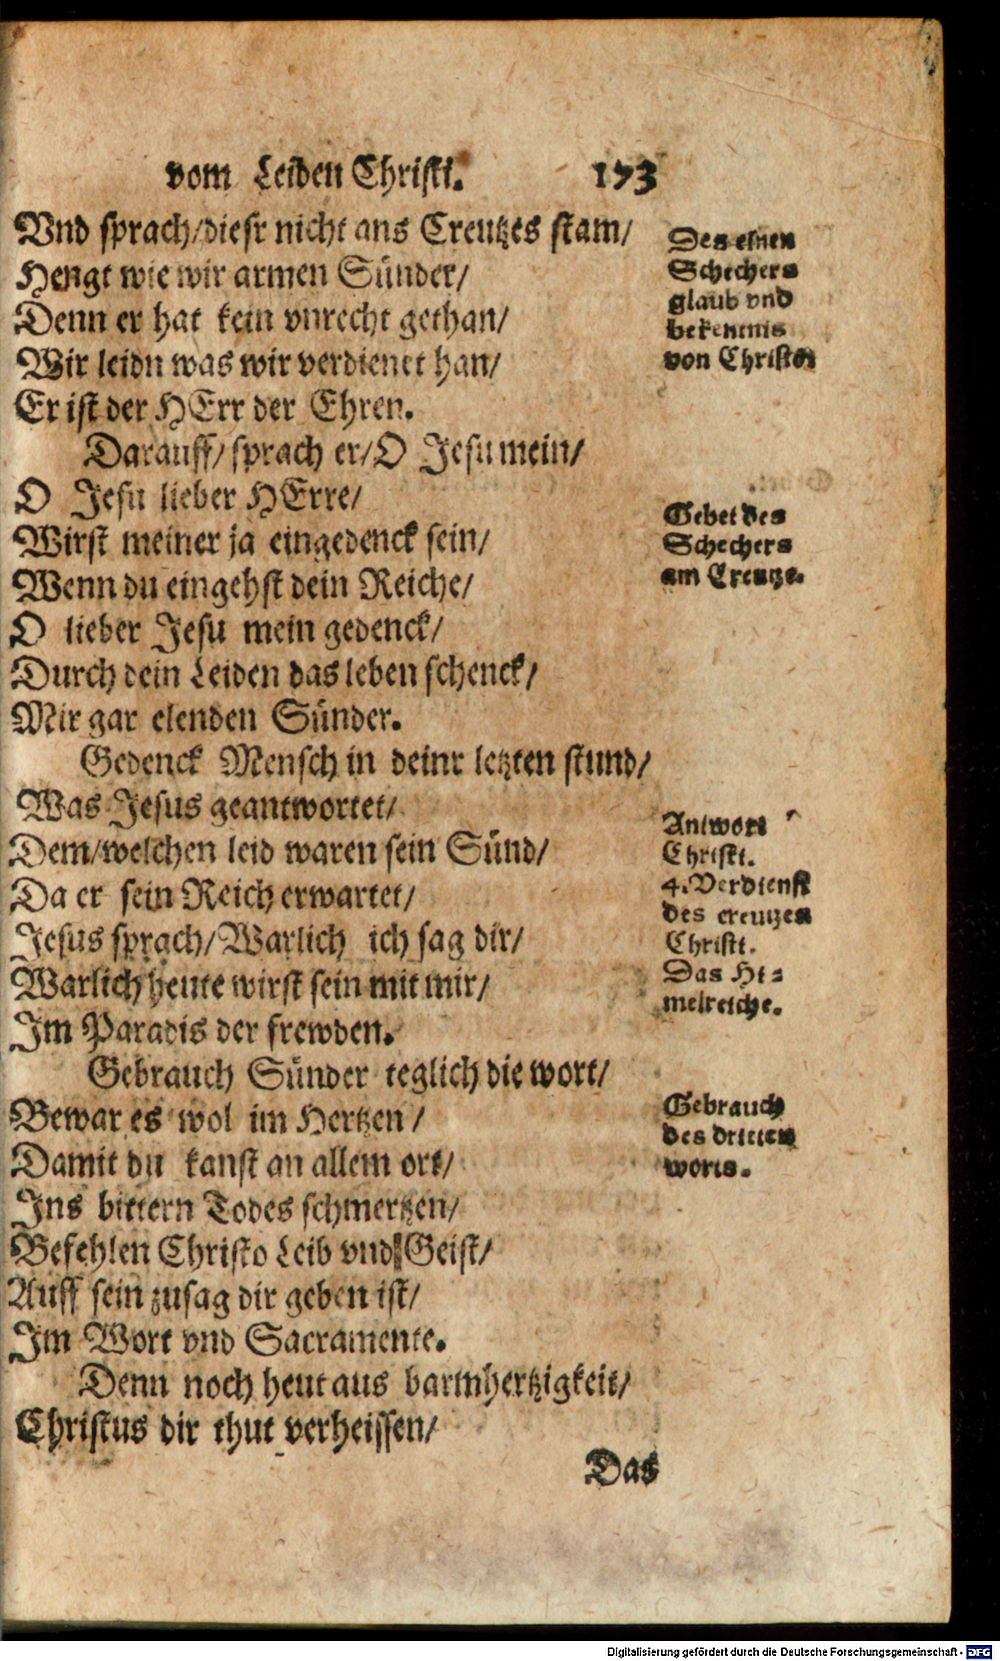 vom Leiden Christi. 173
Vnd sprach/diesr nicht ans Creutzes stam/
Hengt wie wir armen Sünder/
Denn er hat kein vnrecht gethan/
Wir leidn was wir verdienet han/
Er ist der HErr der Ehren.
Darauff/sprach er/O Jesu mein/
O Jesu lieber HErre/
Wirst meiner ja eingedenck sein/
Wenn du eingehst dein Reiche/
O lieber Jesu mein gedenck/
Durch dein Leiden das leben schenck/
Mir gar elenden Sünder.
Gedenck Mensch in deinr letzten stund/
Was Jesus geantwortet/
Dem/welchen leid waren sein Sünd/
Da er sein Reich erwartet/
Jesus sprach/Warlich ich sag dir/
Warlich heute wirst sein mit mir/
Im Paradis der frewden.
Gebrauch Sünder teglich die wort/
Bewar es wol im Hertzen/
Damit du kanst an allem ort/
Ins bittern Todes schmertzen/
Befehlen Christo Leib vnd Geist/
Auff sein zusag dir geben ist/
Im Wort vnd Sacramente.
Denn noch heut aus barmhertzigkeit/
Christus dir thut verheissen/
Das
Des einen
Schechers
glaub vnd
bekentnis
von Christo
Gebet des
Schechers
am Creutze.
Antwort
Christi.
4. Verdienst
des creutzes
Christi.
Das Hi-
melreiche.
Gebrauch
des dritten
worts.
Digitalisierung gefördert durch die Deutsche Forschungsgemeinschaft - DFG